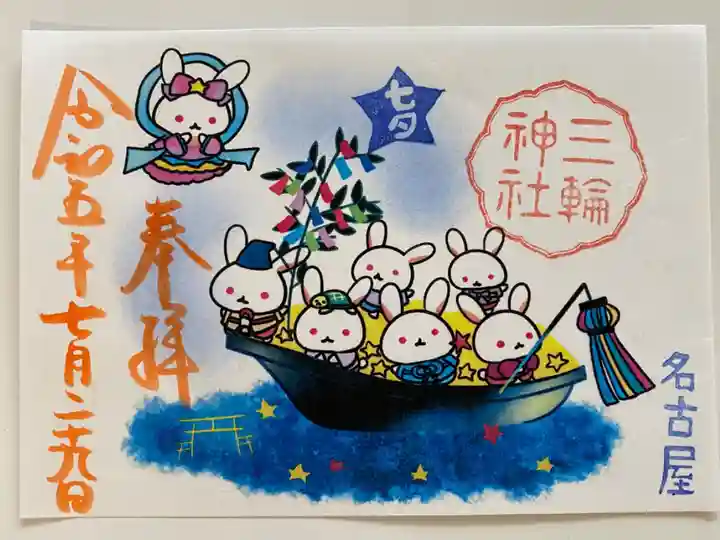 七夕
三輪
神社
奉拝
令和五年七月二十九日
名古屋